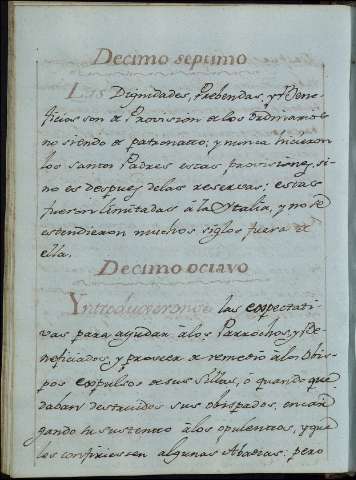 Decimo septimo
Las Dignidades, Prebendas, y Bene-
ficios son de Provision de los Ordinarios
no siendo de patronato; y nunca hicieron
los Santos Padres estas provisiones, si-
no es despues de las reservas: estas
fueron limitadas à la Italia, y no se
estendieron muchos siglos fuera de
ella.
Decimo octavo
Yntroduxeronse las expectati-
vas para ayudar à los Parrochos, y Be-
neficiados, y proveer de remedio à los Obis-
pos expulsos de sus Sillas, ò quando que-
daban destruidos sus obispados, encar-
gando su sustento à los opulentos, y que
les confiriessen algunas Abadias: pero